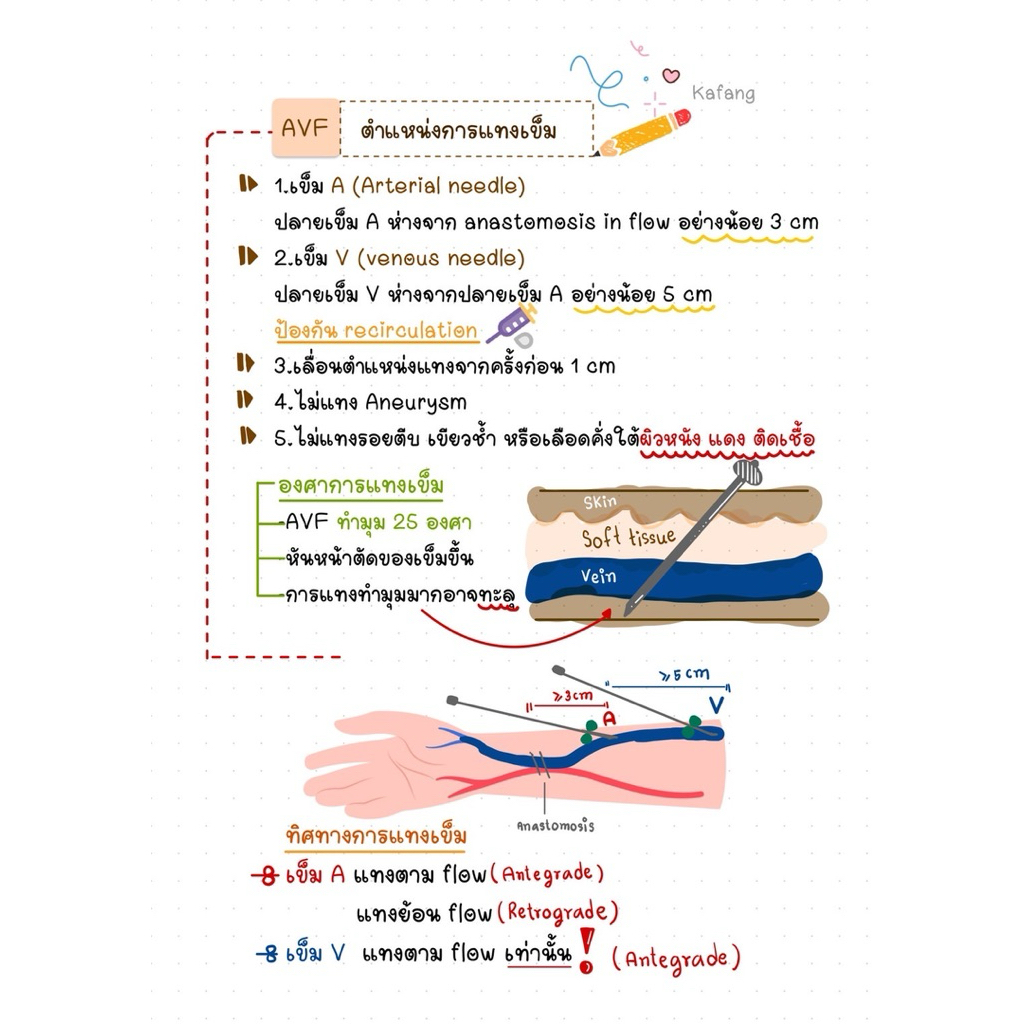 Kafang
AVF ตำแหน่งการแทงเข็ม
1.เข็ม A (Arterial needle)
ปลายเข็ม A ห่างจาก anastomosis in flow อย่างน้อย 3 cm
2.เข็ม V (venous needle)
ปลายเข็ม V ห่างจากปลายเข็ม A อย่างน้อย 5 cm
ป้องกัน recirculation
3.เลื่อนตำแหน่งแทงจากครั้งก่อน 1 cm
4.ไม่แทง Aneurysm
5.ไม่แทงรอยตีบ เขียวช้ำ หรือเลือดคั่งใต้ผิวหนัง แดง ติดเชื้อ
องศาการแทงเข็ม
-AVF ทำมุม 25 องศา
-หันหน้าตัดของเข็มขึ้น
-การแทงทำมุมมากอาจทะลุ
Skin
Soft tissue
Vein
≥5cm
≥3cm
V
A
Anastomosis
ทิศทางการแทงเข็ม
เข็ม A แทงตาม flow (Antegrade)
แทงย้อน flow (Retrograde)
เข็ม V แทงตาม flow เท่านั้น! (Antegrade)